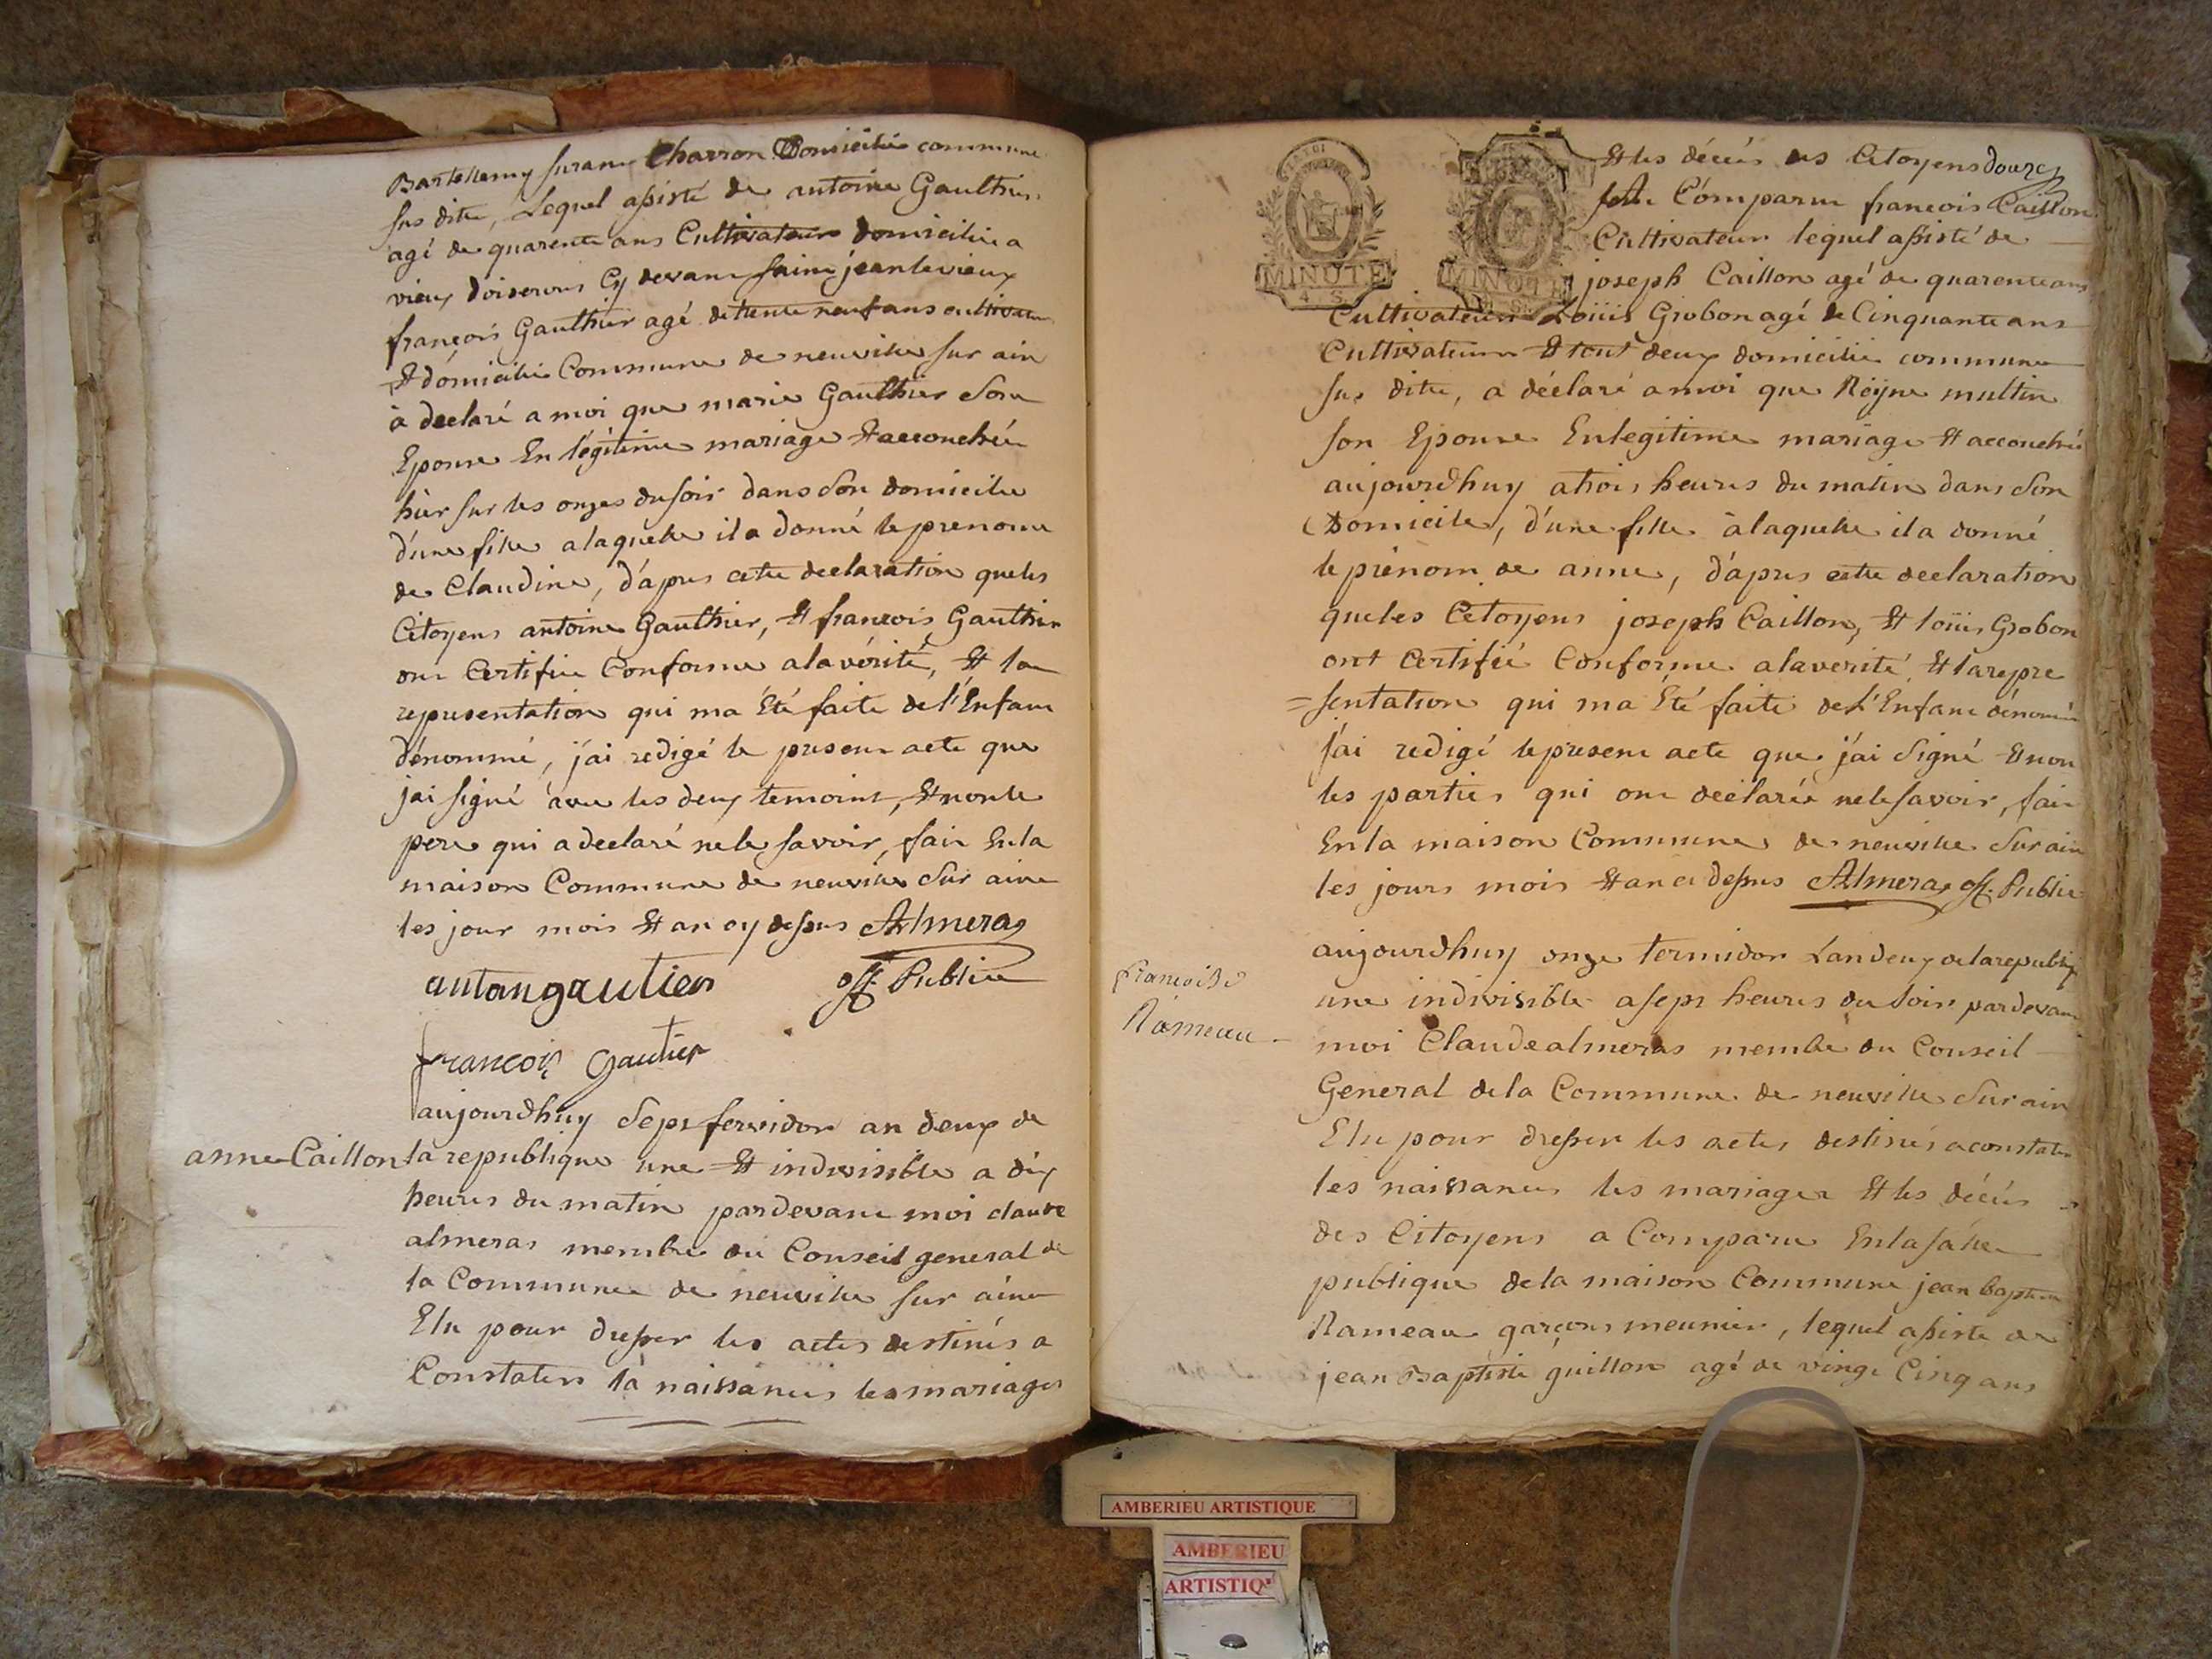 Bartellemy suran Charron Domicilié commune
sus dite, Lequel assisté de antoine Gaulthier
agé de quarente ans Cultivateur domicilié a
vieux d'oiserons Cy devant saint jean le vieux
françois Gaulthier agé de trente neuf ans cultivateur
Et domicilié Commune de neuville sur ain
à declaré a moi que marie Gaulthier Son
Epouse En légitime mariage Et accouchée
hier sur les onzes du soir dans Son domicile
d'une fille a laquelle il a donné le prenom
de Claudine, d'apres cette declaration que les
Citoyens antoine Gaulthier, Et francois Gaulthier
ont Certifié Conforme a la vérité, Et la
representation qui ma Été faite de l'Enfant
dénommé, j'ai redigé le present acte que
jai signé avec les deux temoins, Et non le
pere qui a declaré ne le savoir, fait En la
maison Commune de neuville Sur ain
les jour mois Et an cy dessus Almeras
off. Public
antoingautier
francois gautier
aujourdhuy Sept fervidor an deux de
anne Caillon
la republique une Et indivisible a dix
heures du matin pardevant moi claude
almeras membre du Conseil general de
la Commune de neuville sur ain
Elu pour dresser les actes destinés a
Constater la naissances les mariages
MINUTE
4. S.
MINUTE
Et les décés des Citoyens
Comparu francois Caillon
Cultivateur lequel assisté de
joseph Caillon agé de quarente ans
Cultivateur Loüis Grobon agé de Cinquante ans
Cultivateur Et tout deux domicilié commune
sus dite, a déclaré a moi que Reyne multin
son Epouse En legitime mariage Et accouchée
aujourdhuy a trois heures du matin dans Son
Domicile, d'une fille à laquelle il a donné
le prénom de anne, d'apres cette declaration
que les Citoyens joseph Caillon, Et loüis Grobon
ont Certifié Conforme a la verité Et la repre
=sentation qui ma Été faite de l'Enfant dénommé
J'ai redigé le present acte que j'ai Signé Et non
les parties qui ont déclarée ne le savoir, fait
En la maison Commune de neuville Sur ain
les jours mois Et an ci dessus Almeras off. Public
aujourdhuy onze termidor Lan deux de la republiq
francoise
une indivisible a sept heures du Soir pardevant
Rameau
moi Claude almeras membre du Conseil
General de la Commune de neuville Sur ain
Elu pour dresser les actes destinés a constater
les naissances les mariages Et les décés
des Citoyens a Comparu En la salle
publique de la maison Commune jean baptiste
Rameau garçons meunier, lequel assisté de
jean Baptiste guillon agé de vingt Cinq ans
AMBERIEU ARTISTIQUE
AMBERIEU
ARTISTIQ